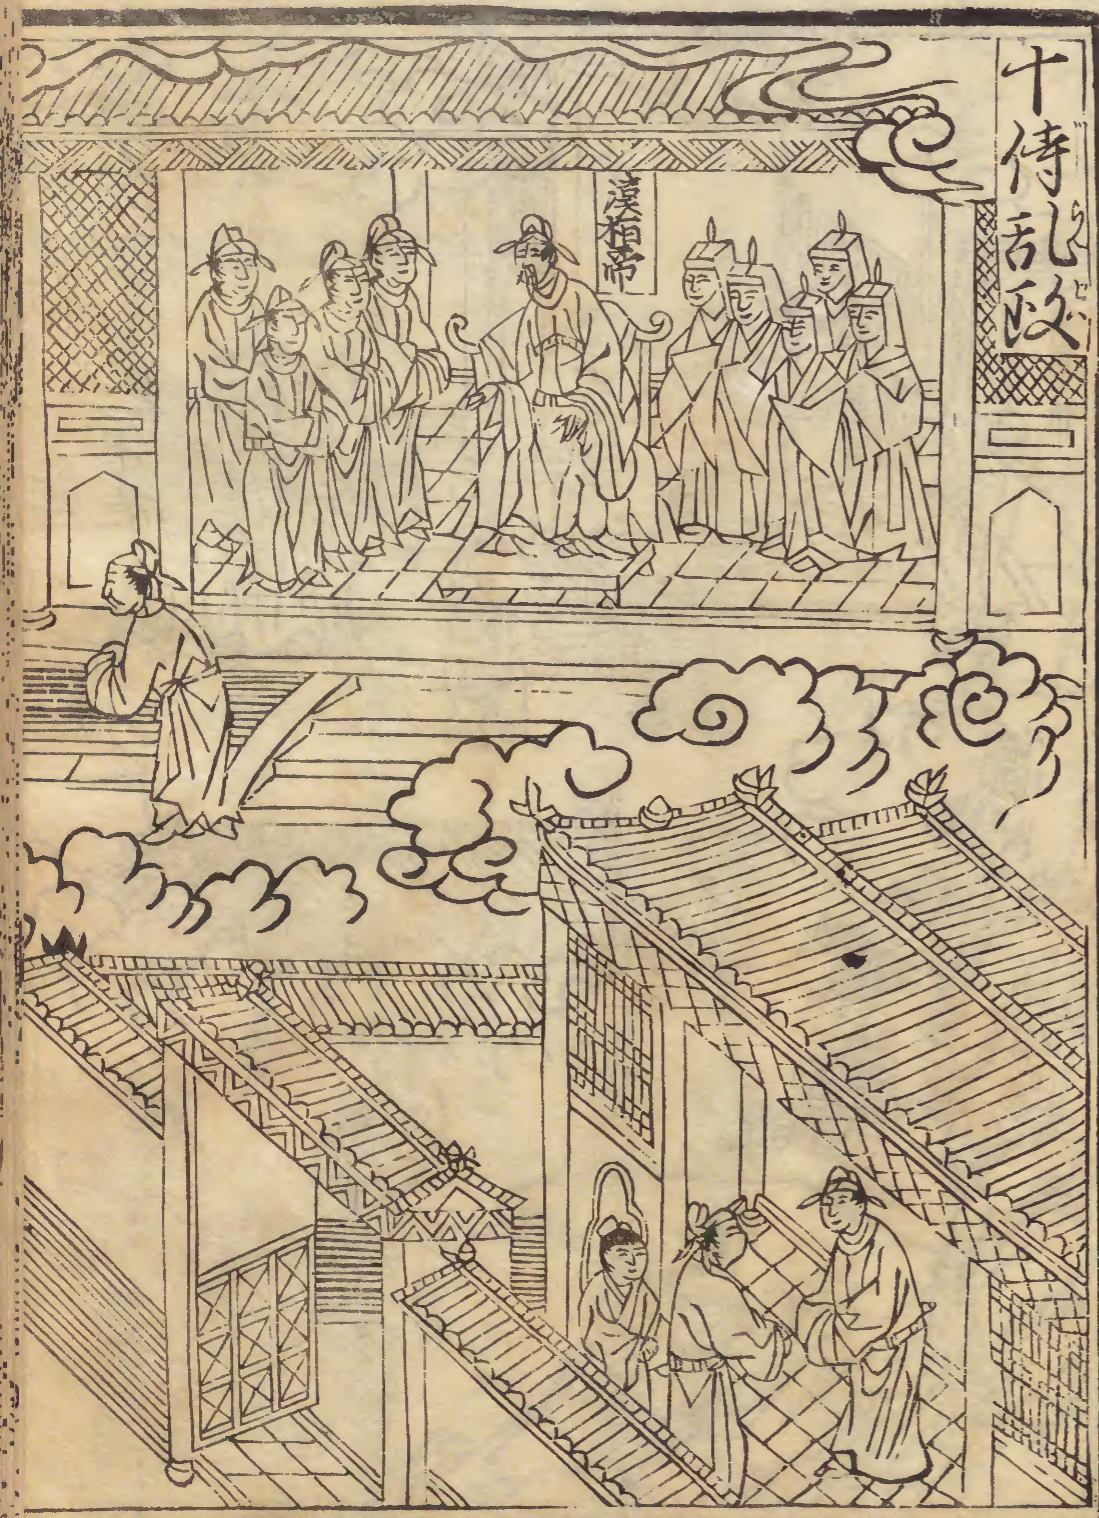 十侍乱政
漢桓帝